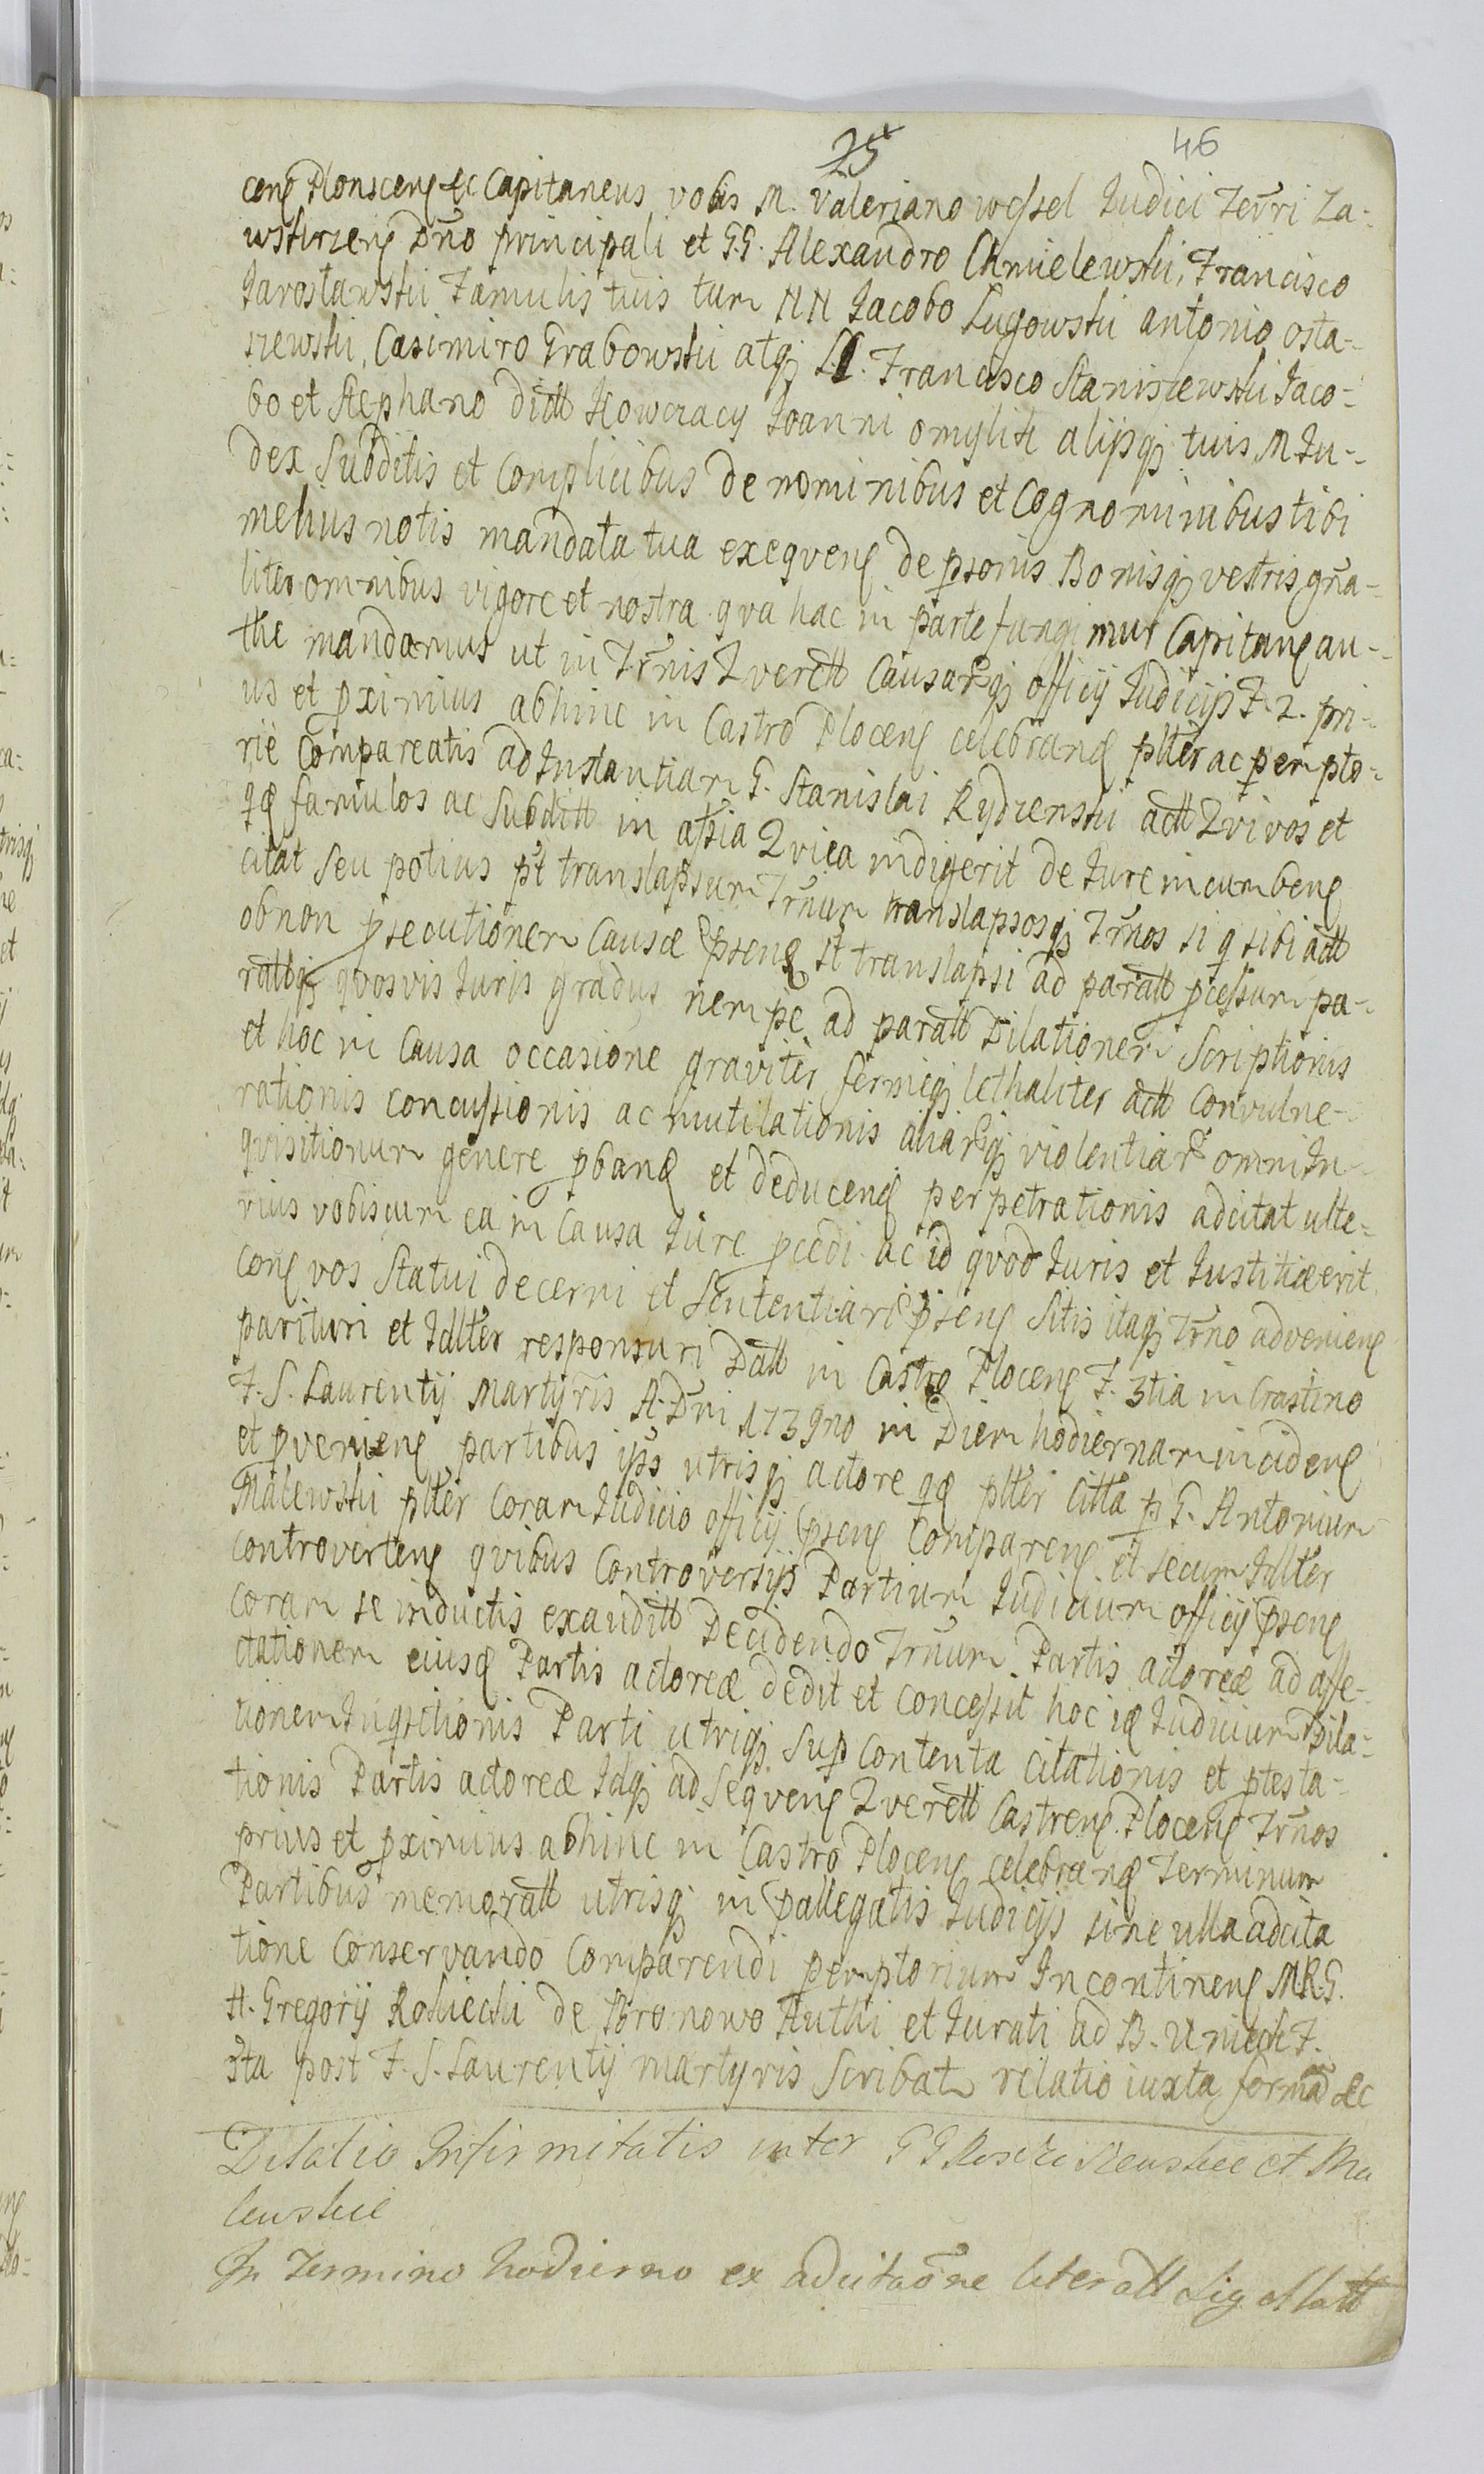 25 46
cenȩ Plonscenȩ &c Capitaneus vobis M. Valeriano Wessel Iudici Terri Za-
wskrzenȩ Dno principali et G.G. Alexandro Chmielewski, Francisco
Jarosławski Famulis tuis tum NN Iacobo Ługowski Antonio Osta-
szewski, Casimiro Grabowski atqȝ LL. Francisco Staniszewski Iaco-
bo et Stephano ditt Joanni alijsqȝ tuis M Iu-
dex Subditis et Complicibus de nominibus et Cognominibus tibi
melius notis mandata tua exeqvenȩ de psonis Bonisqȝ vestris gna-
liter omnibus vigore et nostra qva hac in parte fungimur Capitanȩ au-
the mandamus ut in Trnis Qverett Causarqȝ officij Iudicijs F. 2. pri-
us et pximius abhinc in Castro Plocenȩ celebranȩ pltter ac perempto-
rie Compareatis ad Instantiam G. Stanislai Rydzenski actt Qvi vos et
qȩ famulos ac Subditt in assia Qvica indigerit de Iure incumbenȩ
citat seu potius pt translapsum Trnum translapsosqȝ Trnos si q sibi actt
ob non psecutionem Causæ psenȩ st translapsi ad paratt pcessum pa-
rattqȝ qvosvis Iuris gradus nempe ad paratt Dilationem Scriptionis
et hoc in Causa occasione graviter fermeqȝ lethaliter actt Convulne-
rationis concussionis ac mutilationis aliarqȝ violentiar omni In-
qvisitionum genere pbanȩ et deducenȩ perpetrationis adcitat ulte-
rius vobiscum ea in Causa Iure pcedi ac id qvod Iuris et Iustitiæ erit
Conȩ vos Statui decerni et Sententiari psenȩ Sitis itaqȝ Trno advenienȩ
parituri et Idlter responsuri Datt in Castro Plocenȩ F. 3tia in Crastino
F. S. Laurentij Martyris A. Dni 1739no in Diem hodiernam incidenȩ
et pvenienȩ partibus ips utrisqȝ actore qȩ pltter Citta p G. Antonium
Malewski pltter Coram Iudicio officij psenȩ Comparenȩ et secum Idlter
Controvertenȩ qvibus Controversijs Partium Iudicium officij psenȩ
Coram se inductis exauditt Decidendo Trnum Partis actoreæ ad affe-
ctationem eiusȩ Partis actoreæ dedit et concessit hoc iȩ Iudicium Dila-
tionem Inqsitionis Parti utriqȝ Sup Contenta Citationis et ptesta-
tionis Partis actoreæ Idqȝ ad Seqvenȩ Qverett Castrenȩ Plocenȩ Trnos
prius et pximius abhinc in Castro Plocenȩ celebranȩ Terminum
Partibus memoratt utrisqȝ in pallegatis Iudicijs sine ulla adcita
tione Conservando Comparendi peremptorium Incontinenȩ M.R.G.
H. Gregorij Rokicki de Bronowo Authi et Iurati ad B. F.
5ta post F. S. Laurentij martyris Scribatr relatio iuxta forma &c
Dilatio Infirmitatis inter G G et Ma
lewskie
In Termino hodierno ex adcitaone literatt